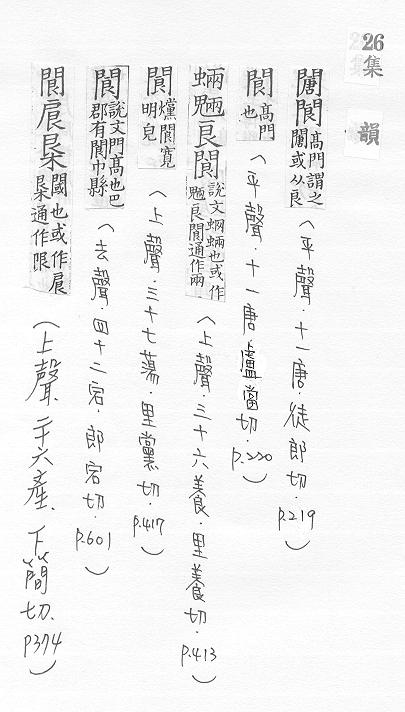 26集韻
闛閬高門謂之闛或从良(平聲.十一唐.徒郎切.p.219)
閬高門也(平聲.十一唐.盧當切.p.220)
蜽魎良閬說文蛧蜽也或作魎良閬通作兩(上聲.三十六養.里養切.p.413)
閬爣閬寬明皃(上聲.三十七蕩.里黨切.p.417)
閬說文門高也巴郡有閬中縣(去聲.四十二宕.郎宕切.p.601)
閬也或作通作限(上聲.二十六產.下簡切.p374)